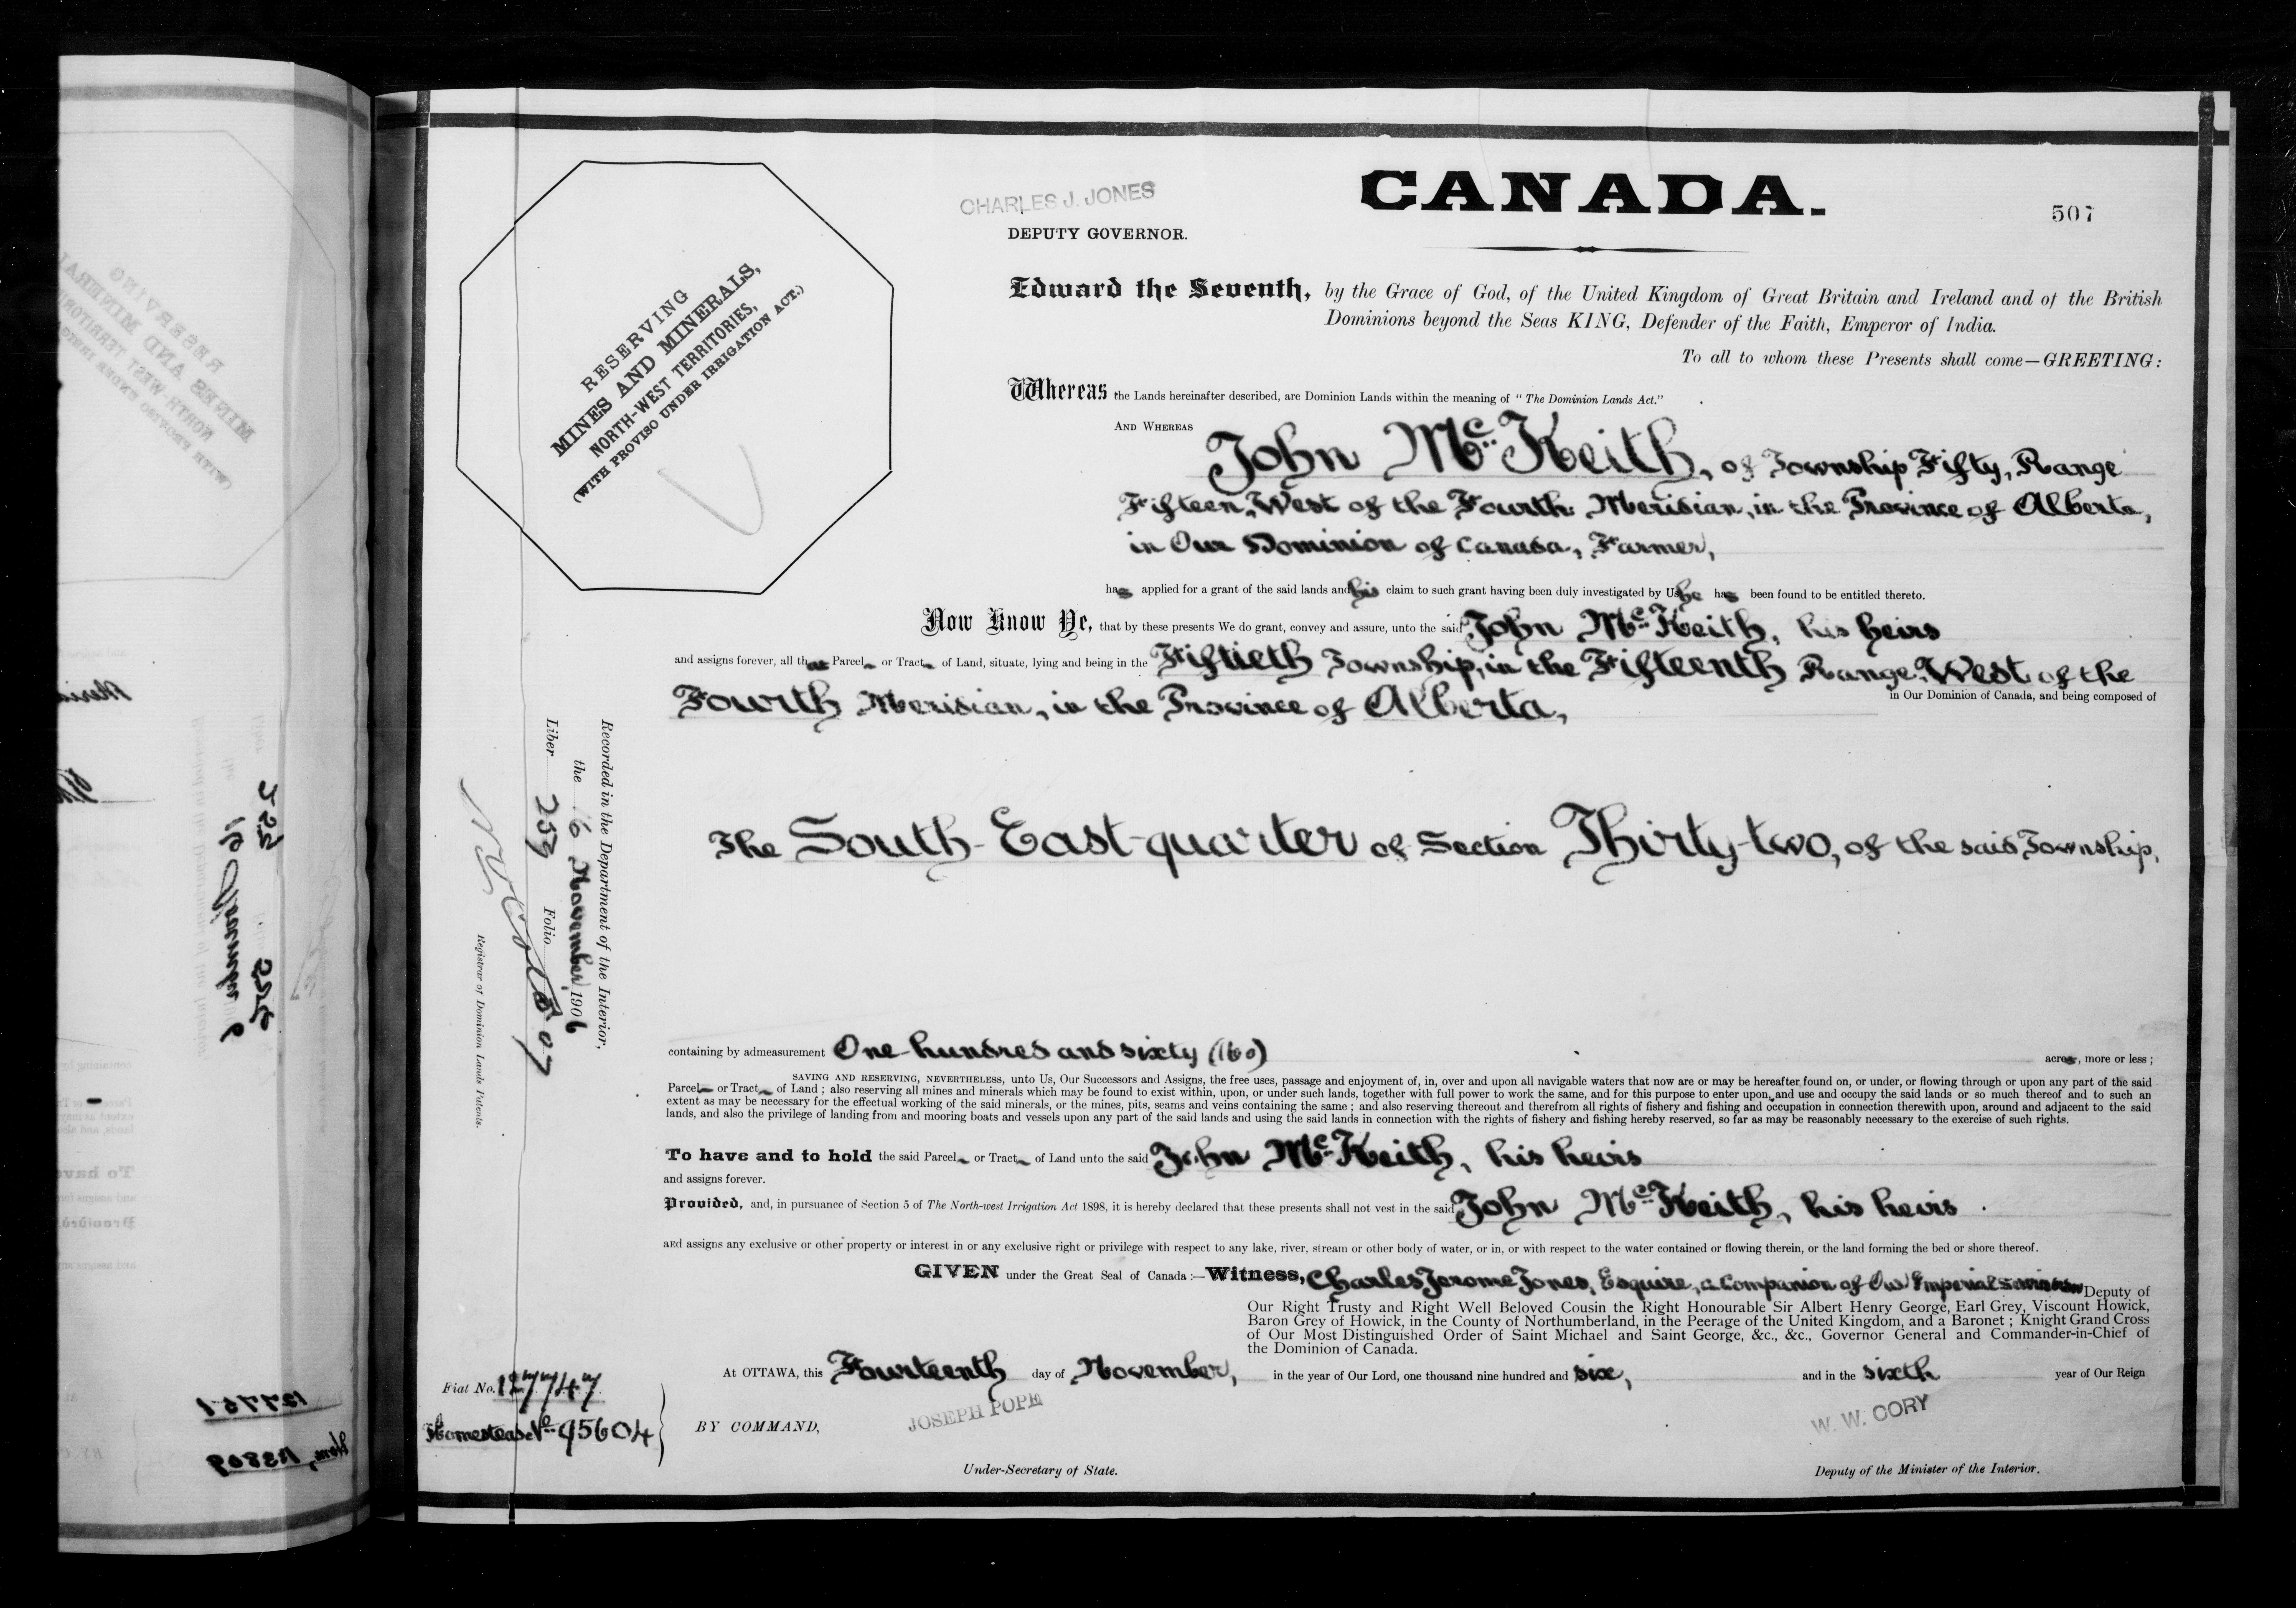 CANADA.
507
CHARLES J. JONES
DEPUTY GOVERNOR.
RESERVING
MINES AND MINERALS,
NORTH-WEST TERRITORIES,
(WITH PROVISO UNDER IRRIGATION ACT.)
Edward the Seventh, by the Grace of God, of the United Kingdom of Great Britain and Ireland and of the British
Dominions beyond the Seas KING, Defender of the Faith, Emperor of India.
To all to whom these Presents shall come—GREETING:
Whereas the Lands hereinafter described, are Dominion Lands within the meaning of "The Dominion Lands Act."
AND WHEREAS John McKeith, of Township Fifty, Range
Fifteen, West of the Fourth Meridian, in the Province of Alberta,
in Our Dominion of Canada, Farmer,
has applied for a grant of the said lands and his claim to such grant having been duly investigated by Us he has been found to be entitled thereto.
Now Know Ye, that by these presents We do grant, convey and assure, unto the said John McKeith, his heirs
and assigns forever, all that Parcel or Tract of Land, situate, lying and being in the Fiftieth Township, in the Fifteenth Range, West of the
Fourth Meridian, in the Province of Alberta, in Our Dominion of Canada, and being composed of
The South-East-quarter of Section Thirty-two, of the said Township,
containing by admeasurement One hundred and sixty (160) acres, more or less;
SAVING AND RESERVING, NEVERTHELESS, unto Us, Our Successors and Assigns, the free uses, passage and enjoyment of, in, over and upon all navigable waters that now are or may be hereafter found on, or under, or flowing through or upon any part of the said
Parcel or Tract of Land; also reserving all mines and minerals which may be found to exist within, upon, or under such lands, together with full power to work the same, and for this purpose to enter upon, and use and occupy the said lands or so much thereof and to such an
extent as may be necessary for the effectual working of the said minerals, or the mines, pits, seams and veins containing the same; and also reserving thereout and therefrom all rights of fishery and fishing and occupation in connection therewith upon, around and adjacent to the said
lands, and also the privilege of landing from and mooring boats and vessels upon any part of the said lands and using the said lands in connection with the rights of fishery and fishing hereby reserved, so far as may be reasonably necessary to the exercise of such rights.
To have and to hold the said Parcel or Tract of Land unto the said John McKeith, his heirs
and assigns forever.
Provided, and, in pursuance of Section 5 of The North-west Irrigation Act 1898, it is hereby declared that these presents shall not vest in the said John McKeith, his heirs
and assigns any exclusive or other property or interest in or any exclusive right or privilege with respect to any lake, river, stream or other body of water, or in, or with respect to the water contained or flowing therein, or the land forming the bed or shore thereof.
GIVEN under the Great Seal of Canada:—Witness, Charles Jerome Jones, Esquire, a Companion of Our Imperial Service Order Deputy of
Our Right Trusty and Right Well Beloved Cousin the Right Honourable Sir Albert Henry George, Earl Grey, Viscount Howick,
Baron Grey of Howick, in the County of Northumberland, in the Peerage of the United Kingdom, and a Baronet; Knight Grand Cross
of Our Most Distinguished Order of Saint Michael and Saint George, &c., &c., Governor General and Commander-in-Chief of
the Dominion of Canada.
At OTTAWA, this Fourteenth day of November, in the year of Our Lord, one thousand nine hundred and six, and in the sixth year of Our Reign
BY COMMAND,
JOSEPH POPE
W. W. CORY
Under-Secretary of State.
Deputy of the Minister of the Interior.
Recorded in the Department of the Interior,
the 16 November 1906
Liber 253 Folio 507
Registrar of Dominion Lands Patents.
Fiat No. 127747
Homestead No. 95604